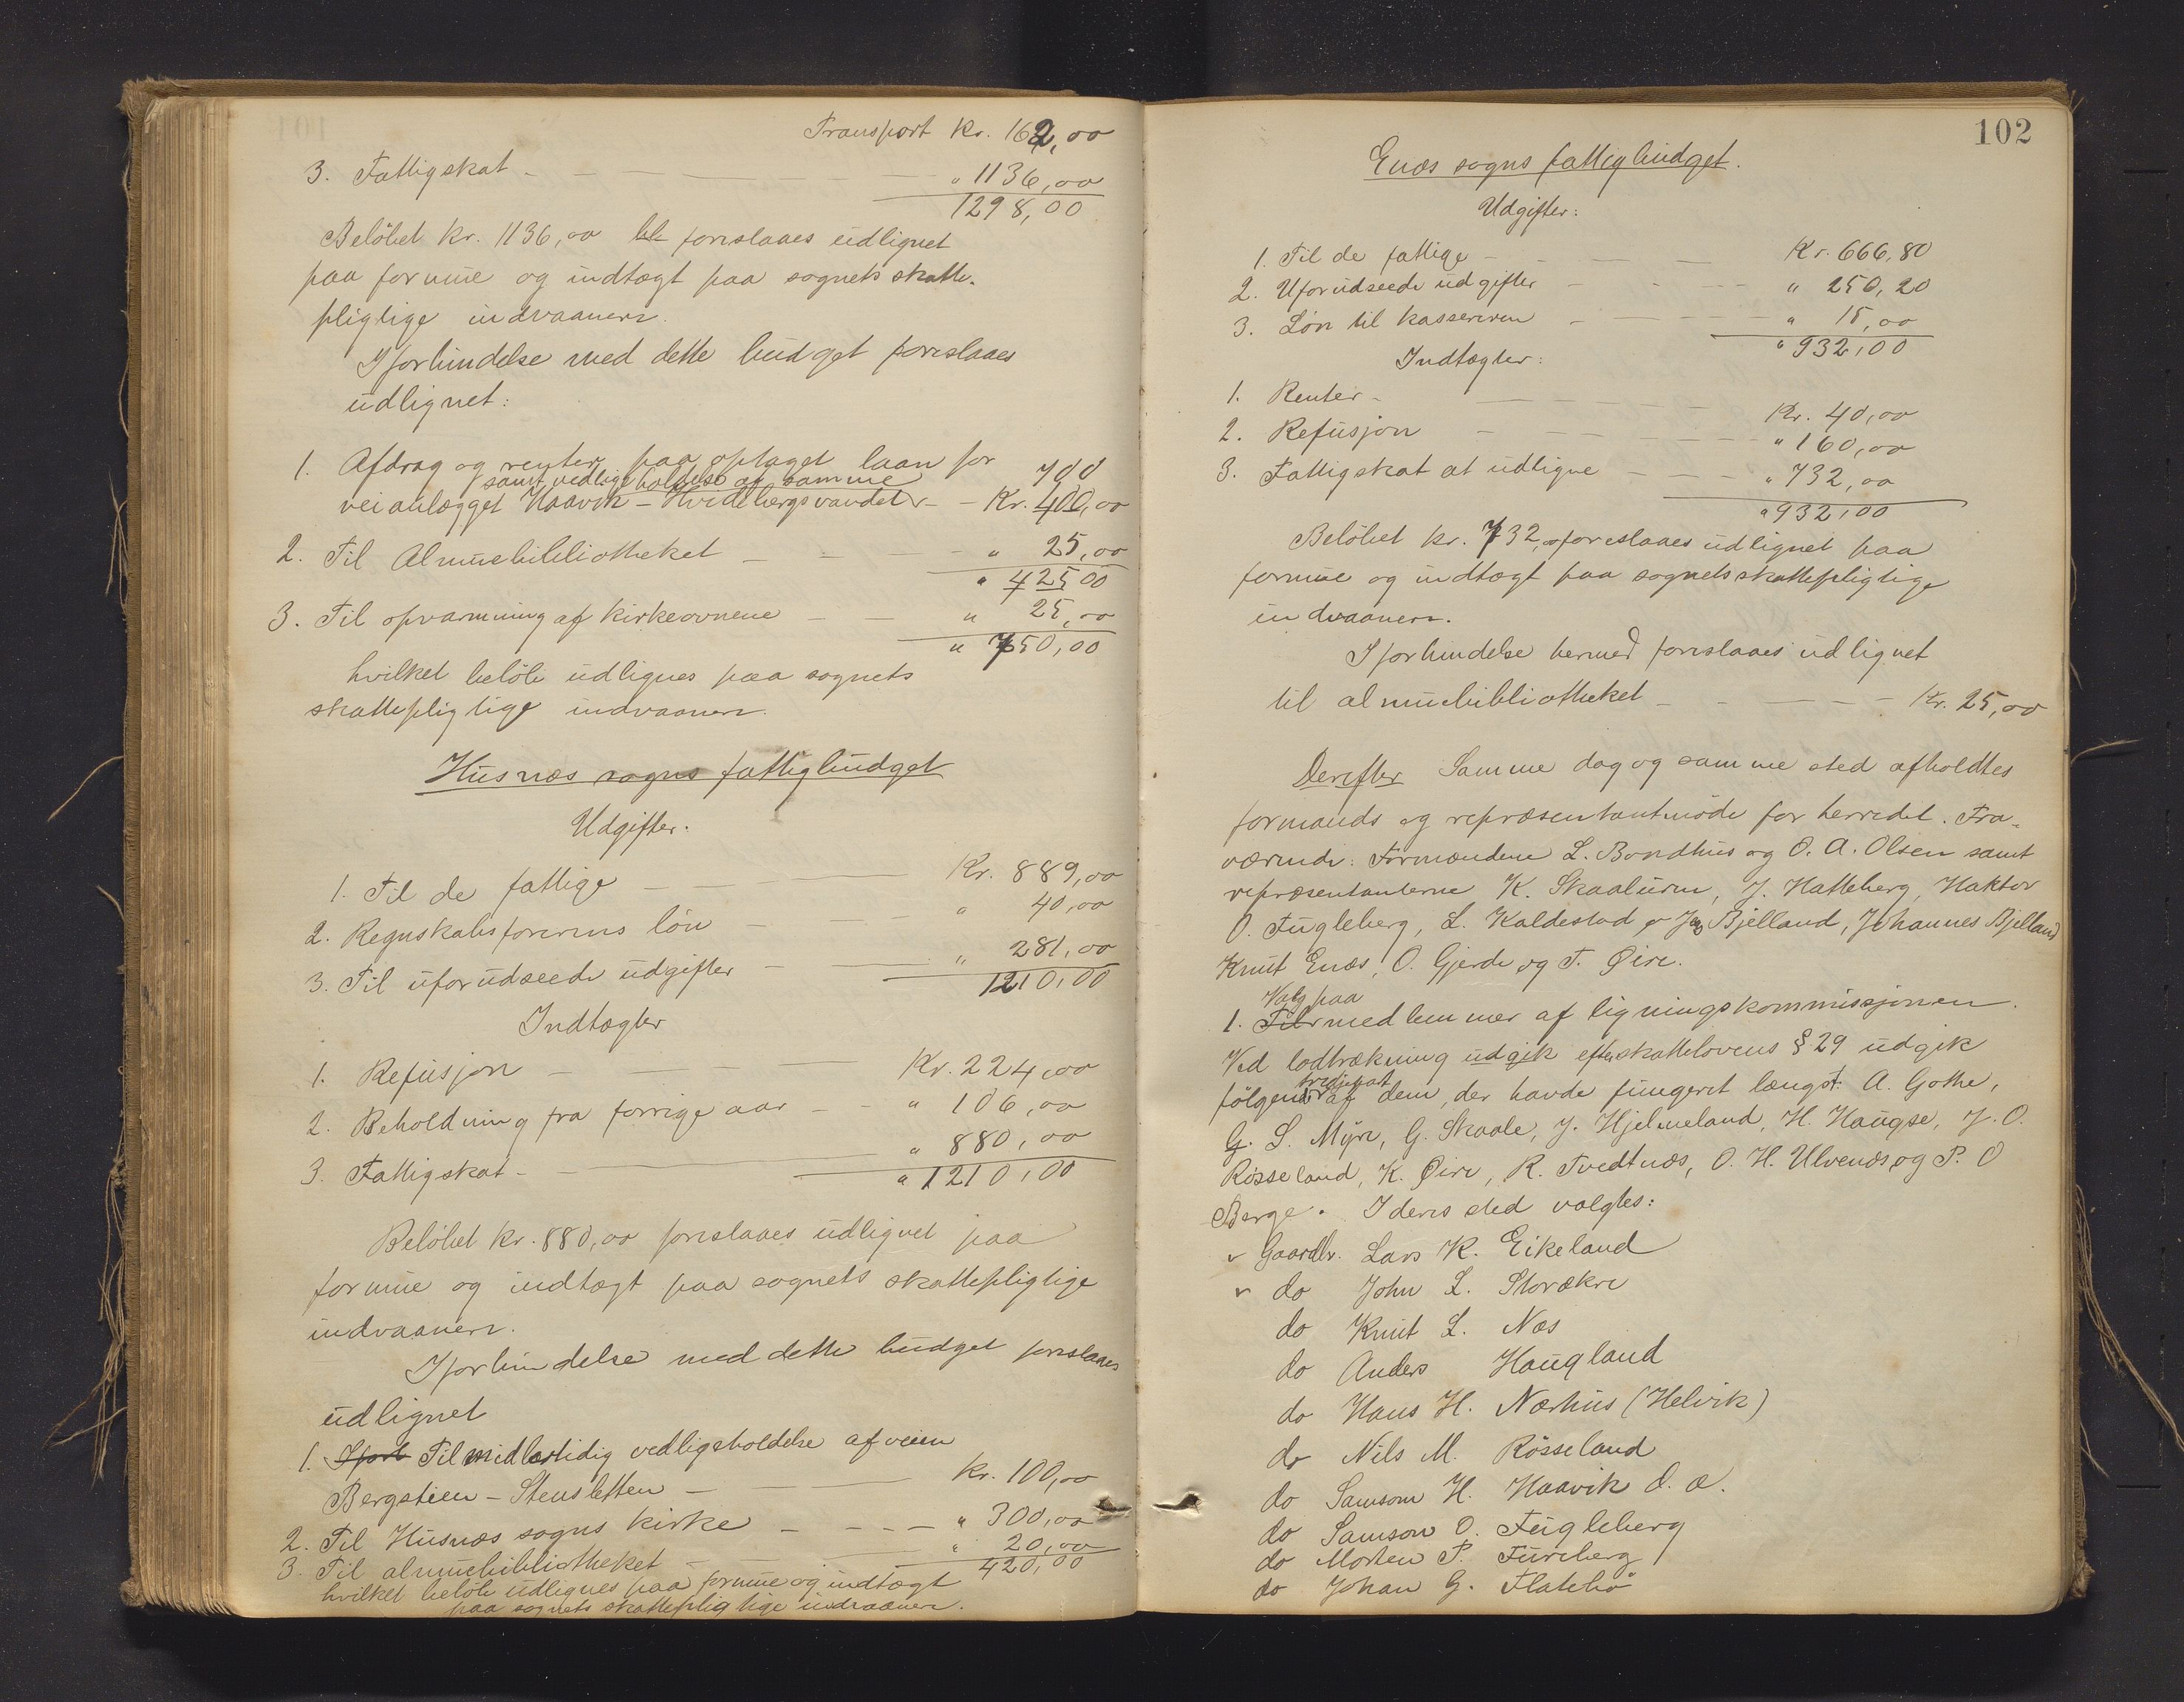 Transport Kr. 162,00
3. Fattigskat - — — — „ 1136,00
1298,00
Beløbet Kr. 1136,00 foreslaaes udlignet
paa formue og indtægt paa sognets skatte-
pligtige indvaanere.
I forbindelse med dette budget foreslaaes
udlignet:
1. Afdrag og renter paa optaget laan for
samt vedligeholdelse af samme 700
veianlægget Haavik - Hvidebergsvandet - - Kr. 400,00
2. Til Almuebibliotheket — „ 25,00
„ 425,00
3. Til opvarmning af kirkeovnene — — „ 25,00
„ 750,00
hvilket beløb udlignes paa sognets
skattepligtige indvaanere.
Husnæs sogns fattigbudget
Udgifter.
1. Til de fattige — — — Kr. 889,00
2. Regnskabsførerens løn — — „ 40,00
3. Til uforudseede udgifter — — „ 281,00
1210,00
Indtægter
1. Refusjon — — — Kr. 224,00
2. Beholdning fra forrige aar — - „ 106,00
3. Fattigskat - — „ 880,00
„ 1210,00
Beløbet Kr. 880,00 foreslaaes udlignet paa
formue og indtægt paa sognets skattepligtige
indvaanere.
I forbindelse med dette budget foreslaaes
udlignet
1. Til midlertidig vedligeholdelse af veien
Bergstien - Stensletten — — Kr. 100,00
2. Til Husnæs sogns kirke — - - — „ 300,00
3. Til almuebibliotheket — — „ 20,00
420,00
hvilket beløb udlignes paa formue og indtægt
paa sognets skattepligtige indvaanere.
102
Enæs sogns fattigbudget.
Udgifter:
1. Til de fattige — — — Kr. 666,80
2. Uforudseede udgifter — - — „ 250,20
3. Løn til kassereren — — — „ 15,00
„ 932,00
Indtægter:
1. Renter - — — — Kr. 40,00
2. Refusjon — — — „ 160,00
3. Fattigskat at udligne — — — „ 732,00
„ 932,00
Beløbet kr. 732,00 foreslaaes udlignet paa
formue og indtægt paa sognets skattepligtige
indvaanere.
I forbindelse hermed foreslaaes udlignet
til almuebibliotheket — - — — Kr. 25,00
Derefter Samme dag og samme sted afholdtes
formands og repræsentantmøde for herredet. Fra-
værende: Formændene L. Bondhus og O. A. Olsen samt
repræsentanterne K. Skaaluren, J. Hatteberg, Haktor
O. Fugleberg, L. Kaldestad, Bjelland, Johannes Bjelland
Knut Enæs, O. Gjerde og T. Øire.
Valg paa
1. medlemmer af ligningskommissjonen.
Ved lodtrækning udgik efter skattelovens § 29 udgik
tredjepart
følgende af dem, der havde fungeret længst: A. Gothe,
G. L. Myre, G. Skaale, J. Hjelmeland, H. Haugse, J. O.
Røsseland, K. Øire, R. Tvedtnæs, O. H. Ulvenæs og P. O
Berge. I deres sted valgtes:
v Gaardbr. Lars K. Eikeland
v do John L. Storækre
do Knut L. Næs
do Anders Haugland
do Hans H. Nærhus (Helvik)
do Nils M. Røsseland
do Samson H. Haavik d. æ.
do Samson O. Fugleberg
do Morten P. Fureberg
do Johan G. Flatebø